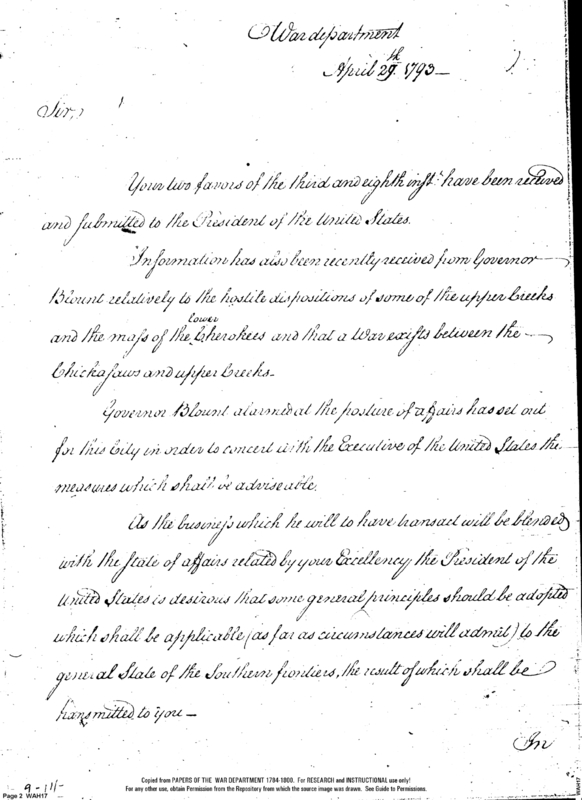 War department
April 29th. 1793—
Sir,
Your two favors of the third and eighth inst. have been received
and submitted to the President of the United States.
Information has also been recently received from Governor
Blount relatively to the hostile dispositions of some of the upper Creeks
and the mass of the lower Cherokees and that a War exists between the
Chickasaws and upper Creeks—
Governor Blount alarmed at the posture of affairs has set out
for this City in order to concert with the Executive of the United States the
measures which shall be adviseable.
As the business which he will to have transact will be blended
with the State of affairs related by your Excellency the President of the
United States is desirous that some general principles should be adopted
which shall be applicable (as far as circumstances will admit) to the
general State of the Southern frontiers, the result of which shall be
transmitted to you—
In
Copied from PAPERS OF THE WAR DEPARTMENT 1784-1800. For RESEARCH and INSTRUCTIONAL use only!
For any other use, obtain Permission from the Repository from which the source image was drawn. See Guide to Permissions.
Page 2 WAH17
WAH17